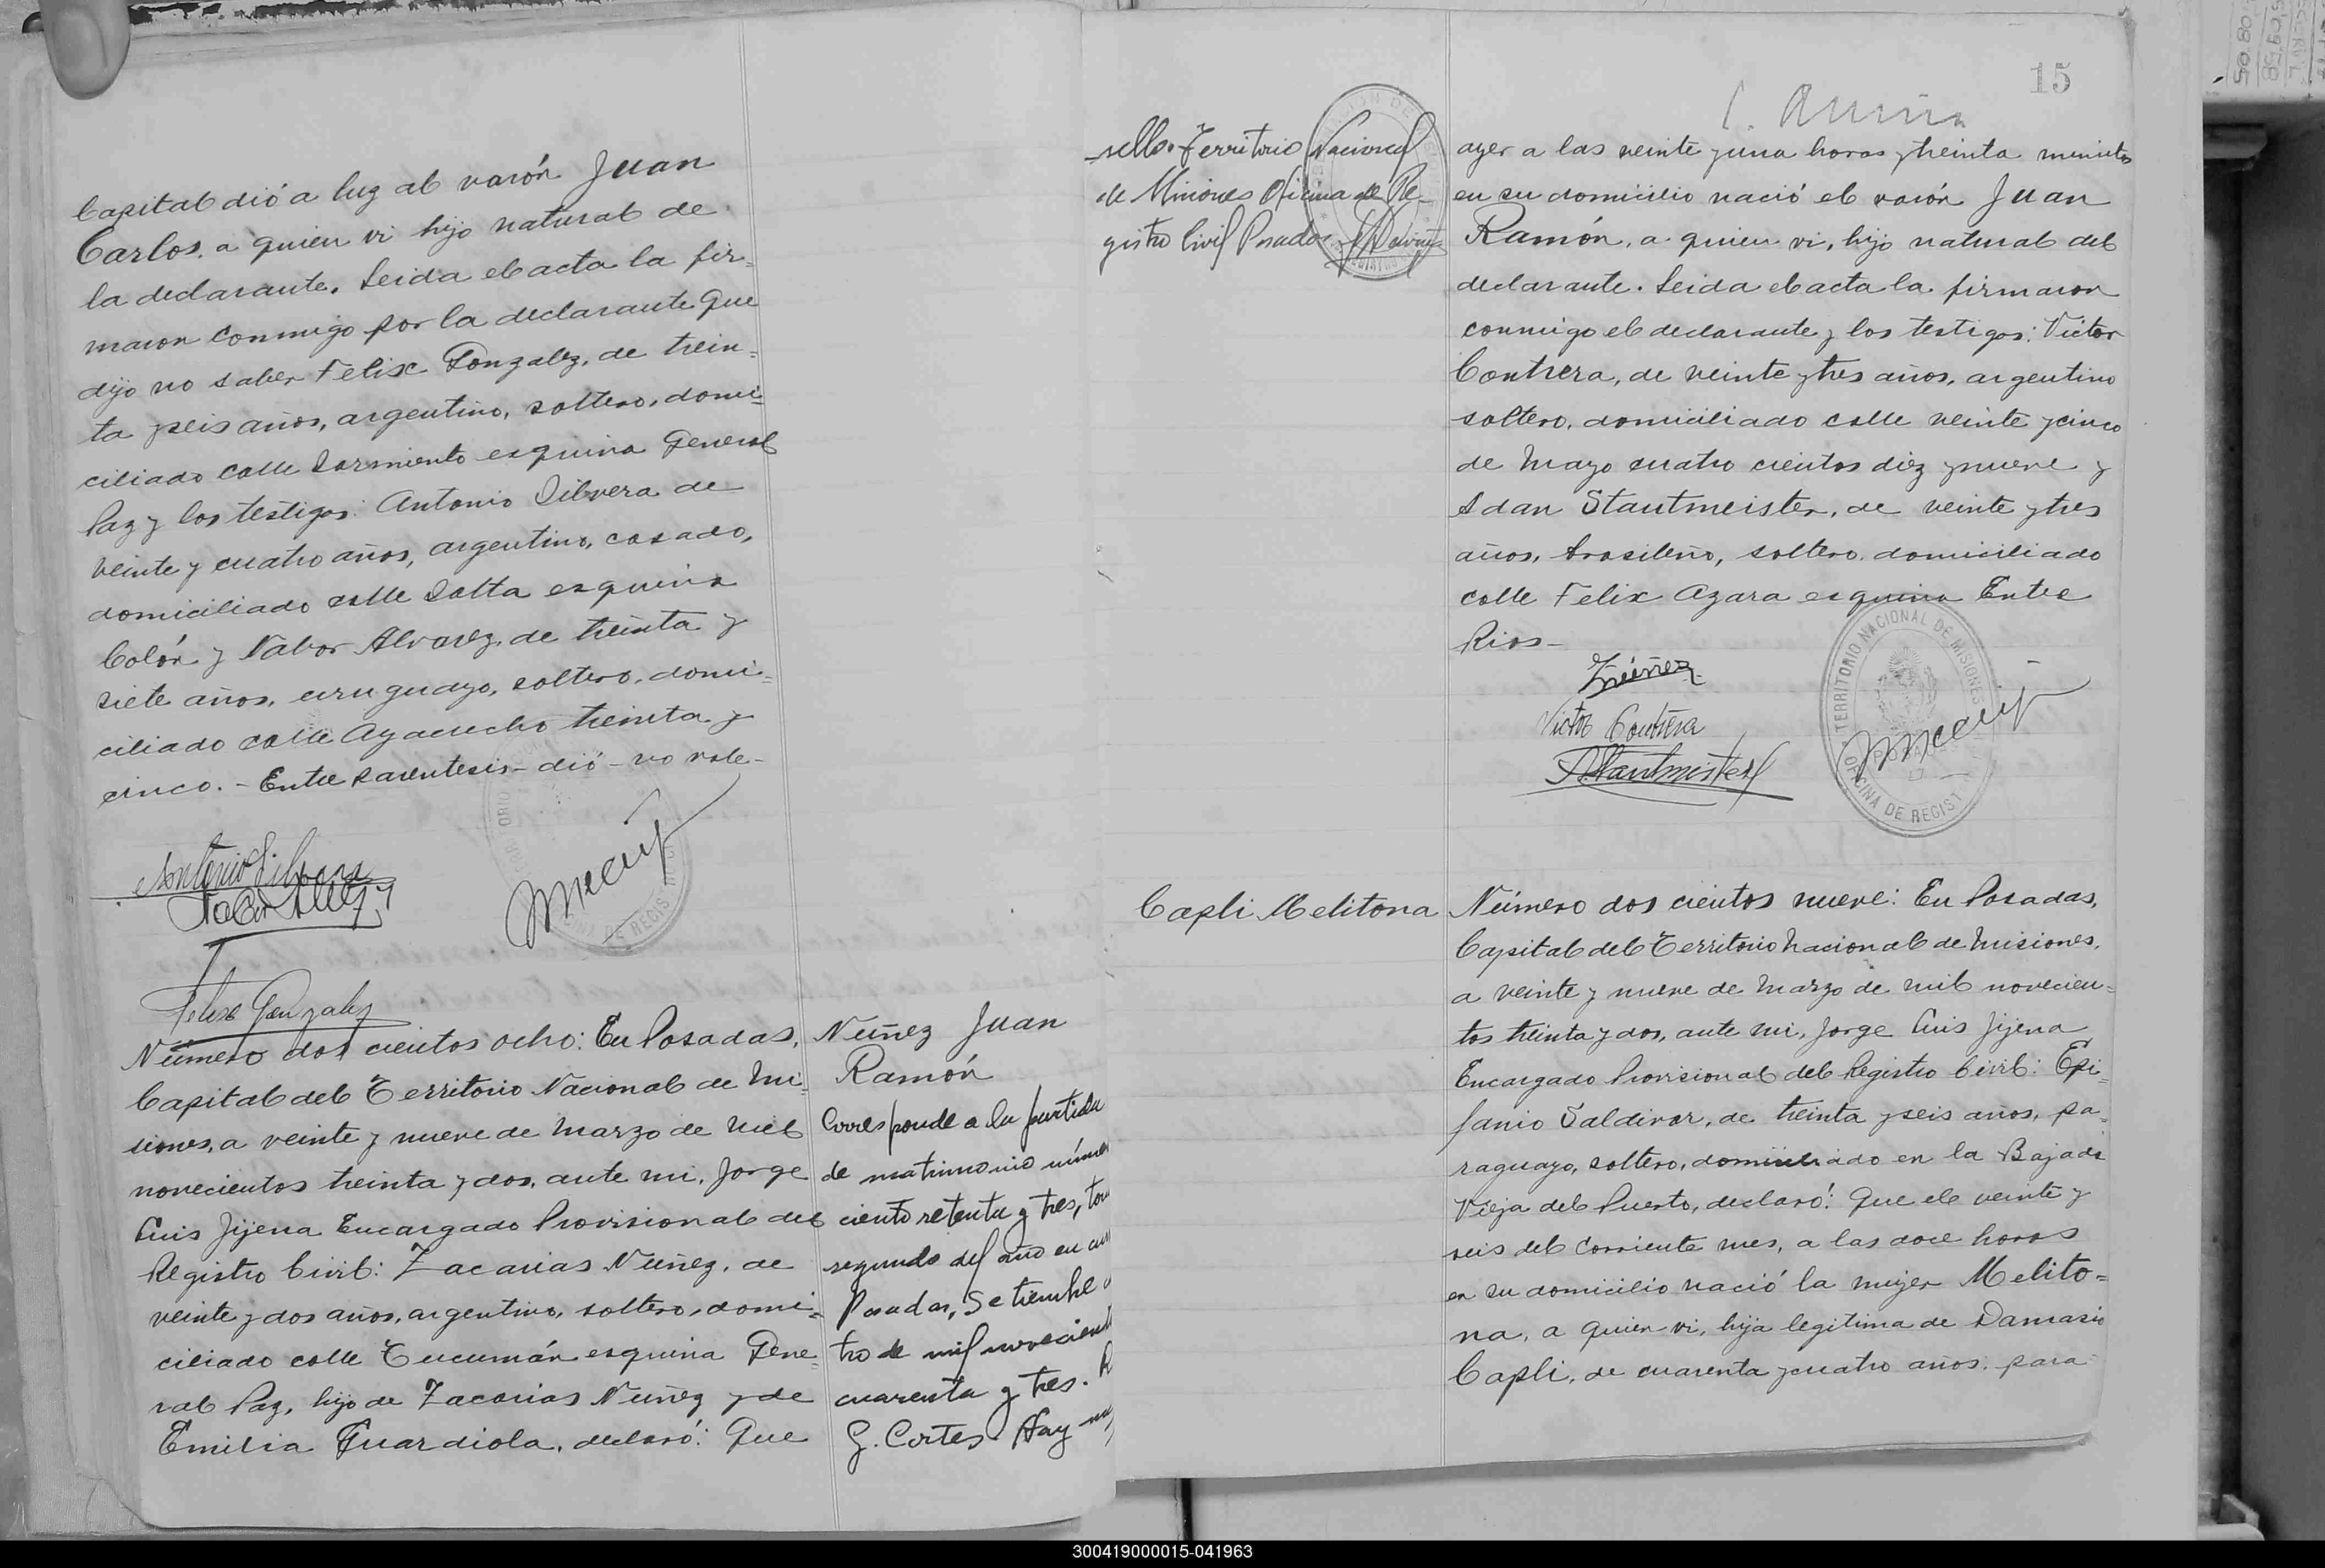 Capital dió a luz al varón Juan
Carlos, a quien vi hijo natural de
la declarante. Leida el acta la fir-
maron conmigo por la declarante que
dijo no saber Felix Gonzalez, de trein-
ta y seis años, argentino, soltero, domi-
ciliado calle Sarmiento esquina General
Paz y los testigos: Antonio Silvera de
veinte y cuatro años, argentino, casado,
domiciliado calle Salta esquina
Colón y Nabor Alvarez, de treinta y
siete años, uruguayo, soltero, domi-
ciliado calle Ayacucho treinta y
cinco. - Entre parentesis - dió - no vale -
Antonio Silvera
Felix Gonzalez
Número dos cientos ocho: En Posadas,
Capital del Territorio Nacional de Mi-
siones, a veinte y nueve de Marzo de mil
novecientos treinta y dos, ante mi, Jorge
Luis Jijena Encargado Provisional del
Registro Civil: Zacarias Nuñez, de
veinte y dos años, argentino, soltero, domi-
ciliado calle Tucumán esquina Gene-
ral Paz, hijo de Zacarias Nuñez y de
Emilia Guardiola, declaró: Que
Nuñez Juan
Ramón
Corresponde a la partida
de matrimonio núme
ciento setenta y tres, tom
segundo del año en cur
Posadas, Setiembre
tro de mil novecient
cuarenta y tres.
G. Cortes. Hay un
15
sello: Territorio Nacional
de Misiones Oficina de Re-
gistro Civil Posadas
ayer a las veinte y una horas y treinta minutos
en su domicilio nació el varón Juan
Ramón, a quien vi, hijo natural del
declarante. Leida el acta la firmaron
conmigo el declarante y los testigos: Victor
Contrera, de veinte y tres años, argentino
soltero, domiciliado calle veinte y cinco
de Mayo cuatro cientos diez y nueve y
Adan Stautmeister, de veinte y tres
años, brasileño, soltero, domiciliado
calle Felix Azara esquina Entre
Rios -
ZNúñez
Victor Contrera
AStautmister
TERRITORIO NACIONAL DE MISIONES
OFICINA DE REGIST
Capli Melitona
Número dos cientos nueve: En Posadas,
Capital del Territorio Nacional de Misiones,
a veinte y nueve de Marzo de mil novecien-
tos treinta y dos, ante mi, Jorge Luis Jijena
Encargado Provisional del Registro Civil: Epi-
fanio Saldivar, de treinta y seis años, pa-
raguayo, soltero, domiciliado en la Bajada
Vieja del Puerto, declaró: Que el veinte y
seis del corriente mes, a las doce horas
en su domicilio nació la mujer Melito-
na, a quien vi, hija legitima de Damasio
Capli, de cuarenta y cuatro años, para-
300419000015-041963